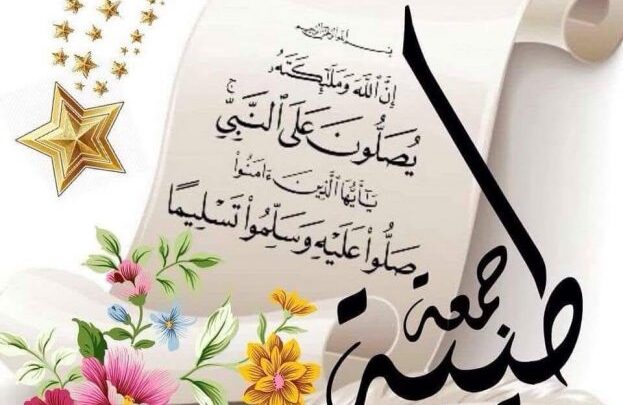 بسم الله الرحمن الرحيم
إِنَّ ٱللَّهَ وَمَلَٰٓئِكَتَهُۥ
يُصَلُّونَ عَلَى ٱلنَّبِيِّۚ
يَٰٓأَيُّهَا ٱلَّذِينَ ءَامَنُوا۟
صَلُّوا۟ عَلَيْهِ وَسَلِّمُوا۟ تَسْلِيمًا
جمعة
طيبة